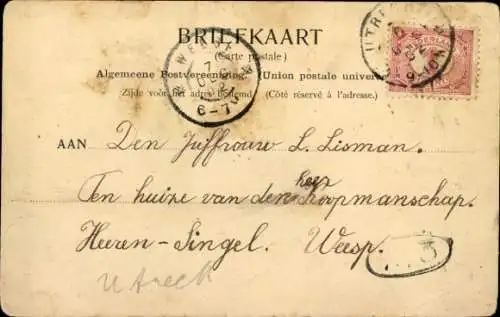 BRIEFKAART
(Carte postale)
Algemeene Postvereeniging Union postale univers
Zijde voor het adres bestemd. (Côté réservé à l'adresse.)
WEESP
7
6-7
UTRECHT
AAN Den Juffrouw L. Lisman.
heer
Ten huize van den Koopmanschap.
Heeren-Singel. Weesp.
3
Utrech